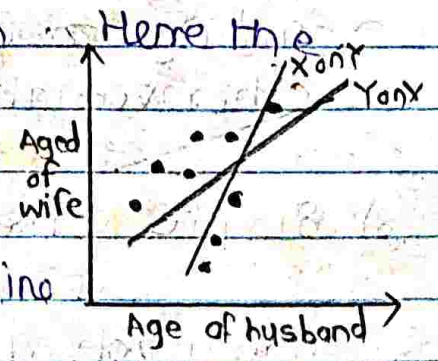 Heme the
X on Y
Y on X
Aged
of
wife
ing
Age of husband